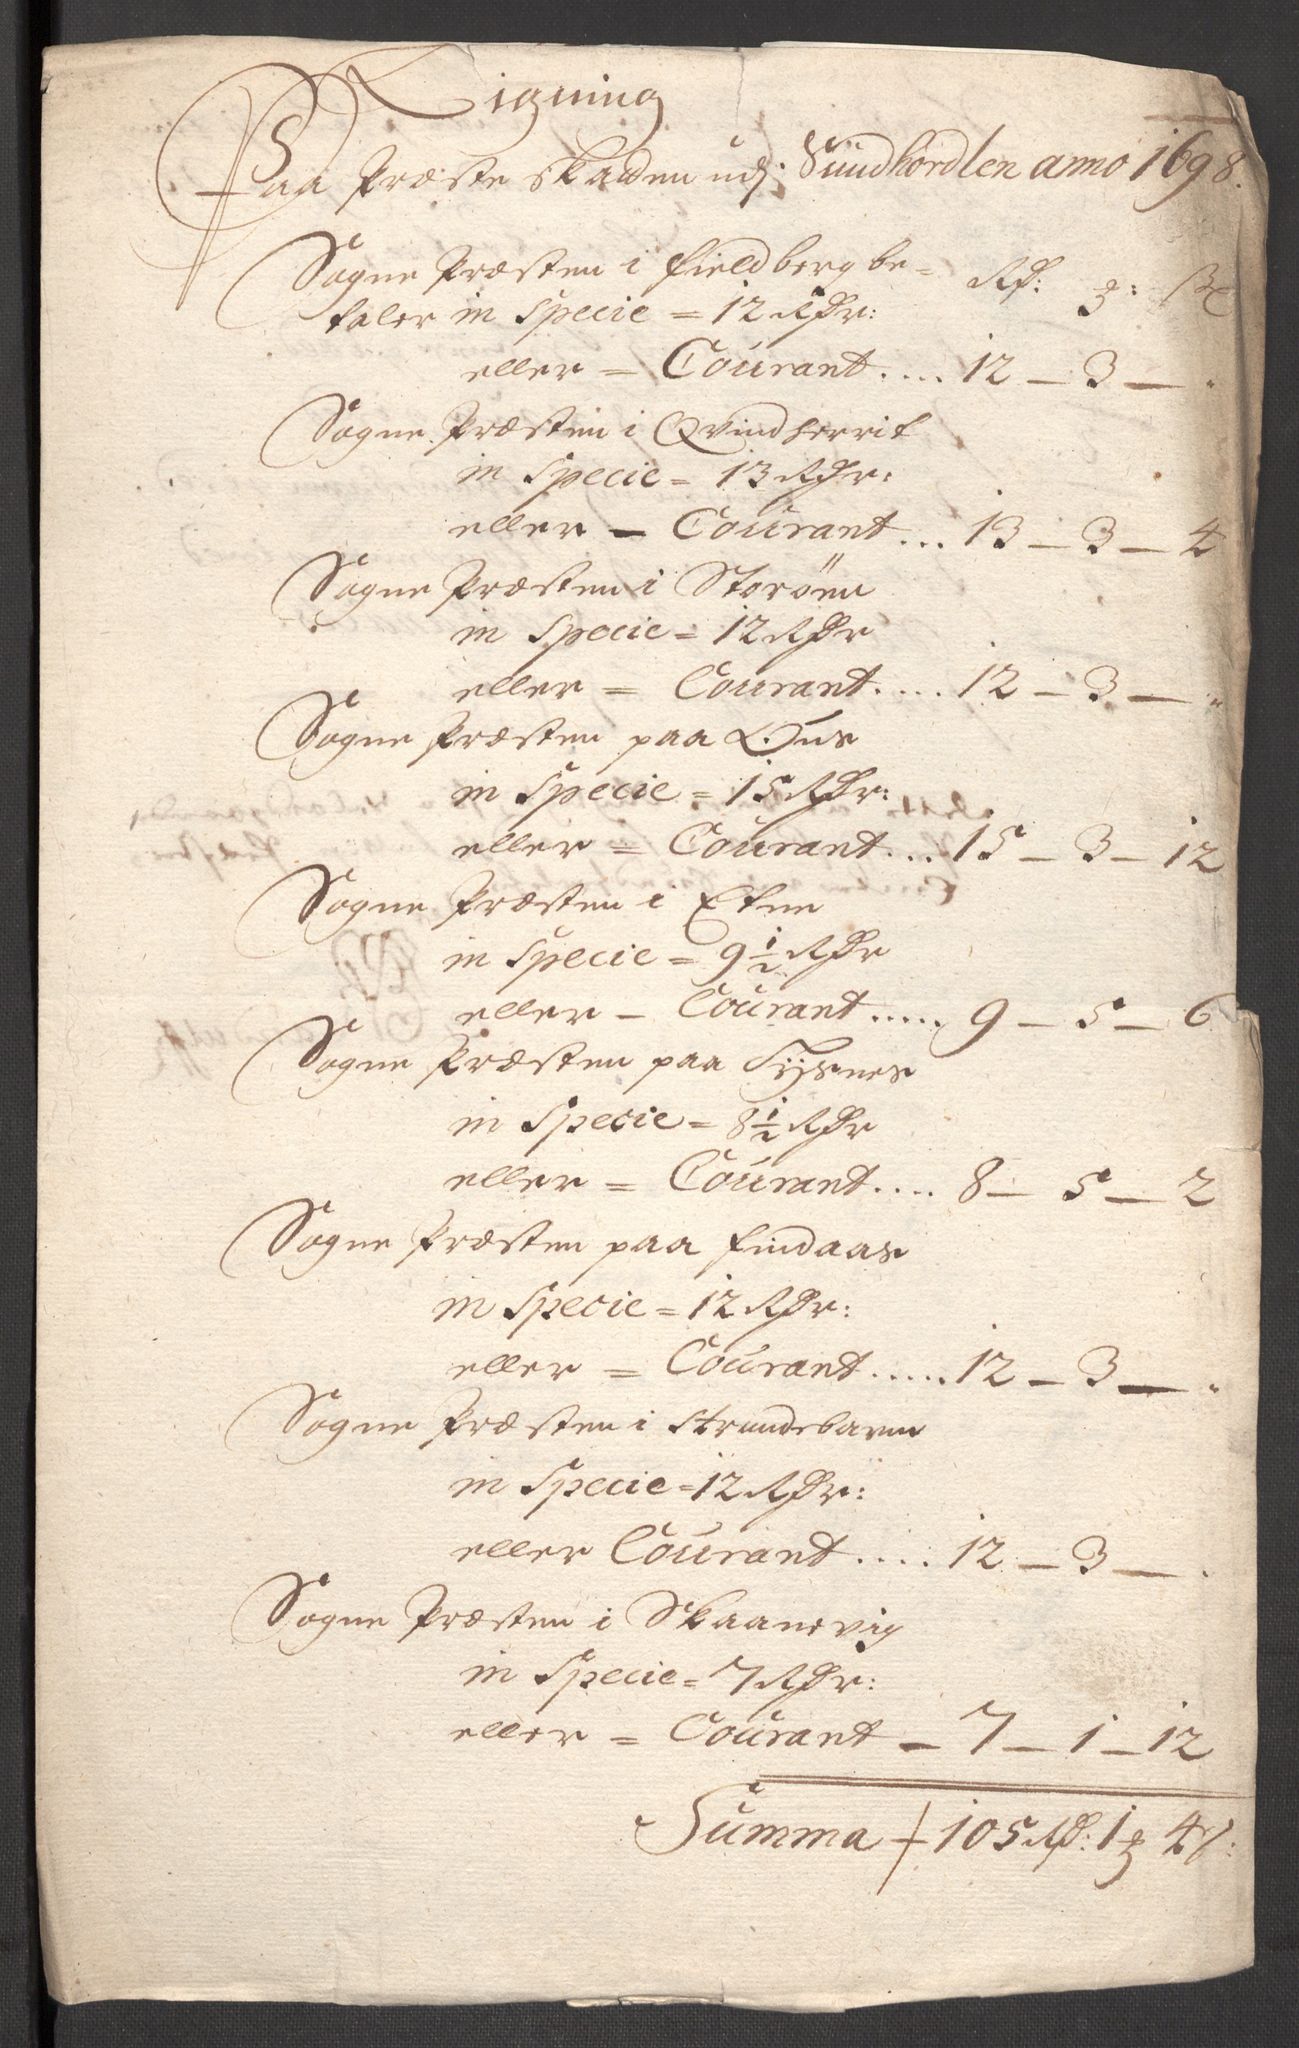 Ligning
Paa Præste Skatten udj. Sundhordlen anno 1698.
Sogne Præsten i Fieldberg be=
taler in Specie = 12 Rdr: Rd: ß
eller = Courant .... 12 — 3 — "
Sogne Præsten i Qvindherrit
in Specie = 13 Rdr:
eller — Courant ... 13 — 3 — 4
Sogne Præsten i Storöen
in Specie = 12 Rdr
eller = Courant .... 12 — 3 — "
Sogne Præsten paa Ous
in Specie = 15 Rdr:
eller = Courant ... 15 — 3 — 12
Sogne Præsten i Etne
in Specie = 9 1/2 Rdr
eller — Courant ..... 9 — 5 — 6
Sogne Præsten paa Tysnes
in Specie = 8 1/2 Rdr
eller = Courant .... 8 — 5 — 2
Sogne Præsten paa Findaas
in Specie = 12 Rdr:
eller = Courant ..... 12 — 3 — "
Sogne Præsten i Strandebarm
in Specie = 12 Rdr:
eller Courant .... 12 — 3 — .
Sogne Præsten i Skaanevig
in Specie = 7 Rdr:
eller = Courant — 7 — 1 — 12
Summa 105 Rd: 1 4 ß: